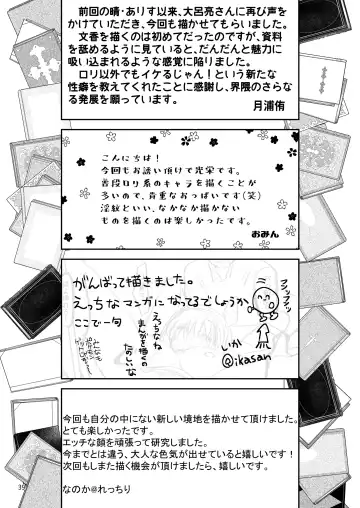 前回の晴・ありす以来、大呂亮さんに再び声を
かけていただき、今回も描かせてもらいました。
文香を描くのは初めてだったのですが、資料
を舐めるように見ていると、だんだんと魅力に
吸い込まれるような感覚に陥りました。
ロリ以外でもイケるじゃん！という新たな
性癖を教えてくれたことに感謝し、界隈のさらな
る発展を願っています。
月浦侑
こんにちは！
今回もお誘い頂けて光栄です。
普段ロリ系のキャラを描くことが
多いので、貴重なおっぱいです(笑)
淫紋といい、なかなか描かない
ものを描くのは楽しかったです。
おみん
がんばって描きました。
えっちなマンガになってるでしょうか
ここで一句
えっちなね
まんがを描くの
たのしいな
いか
@ikasan
今回も自分の中にない新しい境地を描かせて頂けました。
とても楽しかったです。
エッチな顔を頑張って研究しました。
今までとは違う、大人な色気が出せていると嬉しいです！
次回もしまた描く機会が頂けましたら、嬉しいです。
なのか@れっちり
39